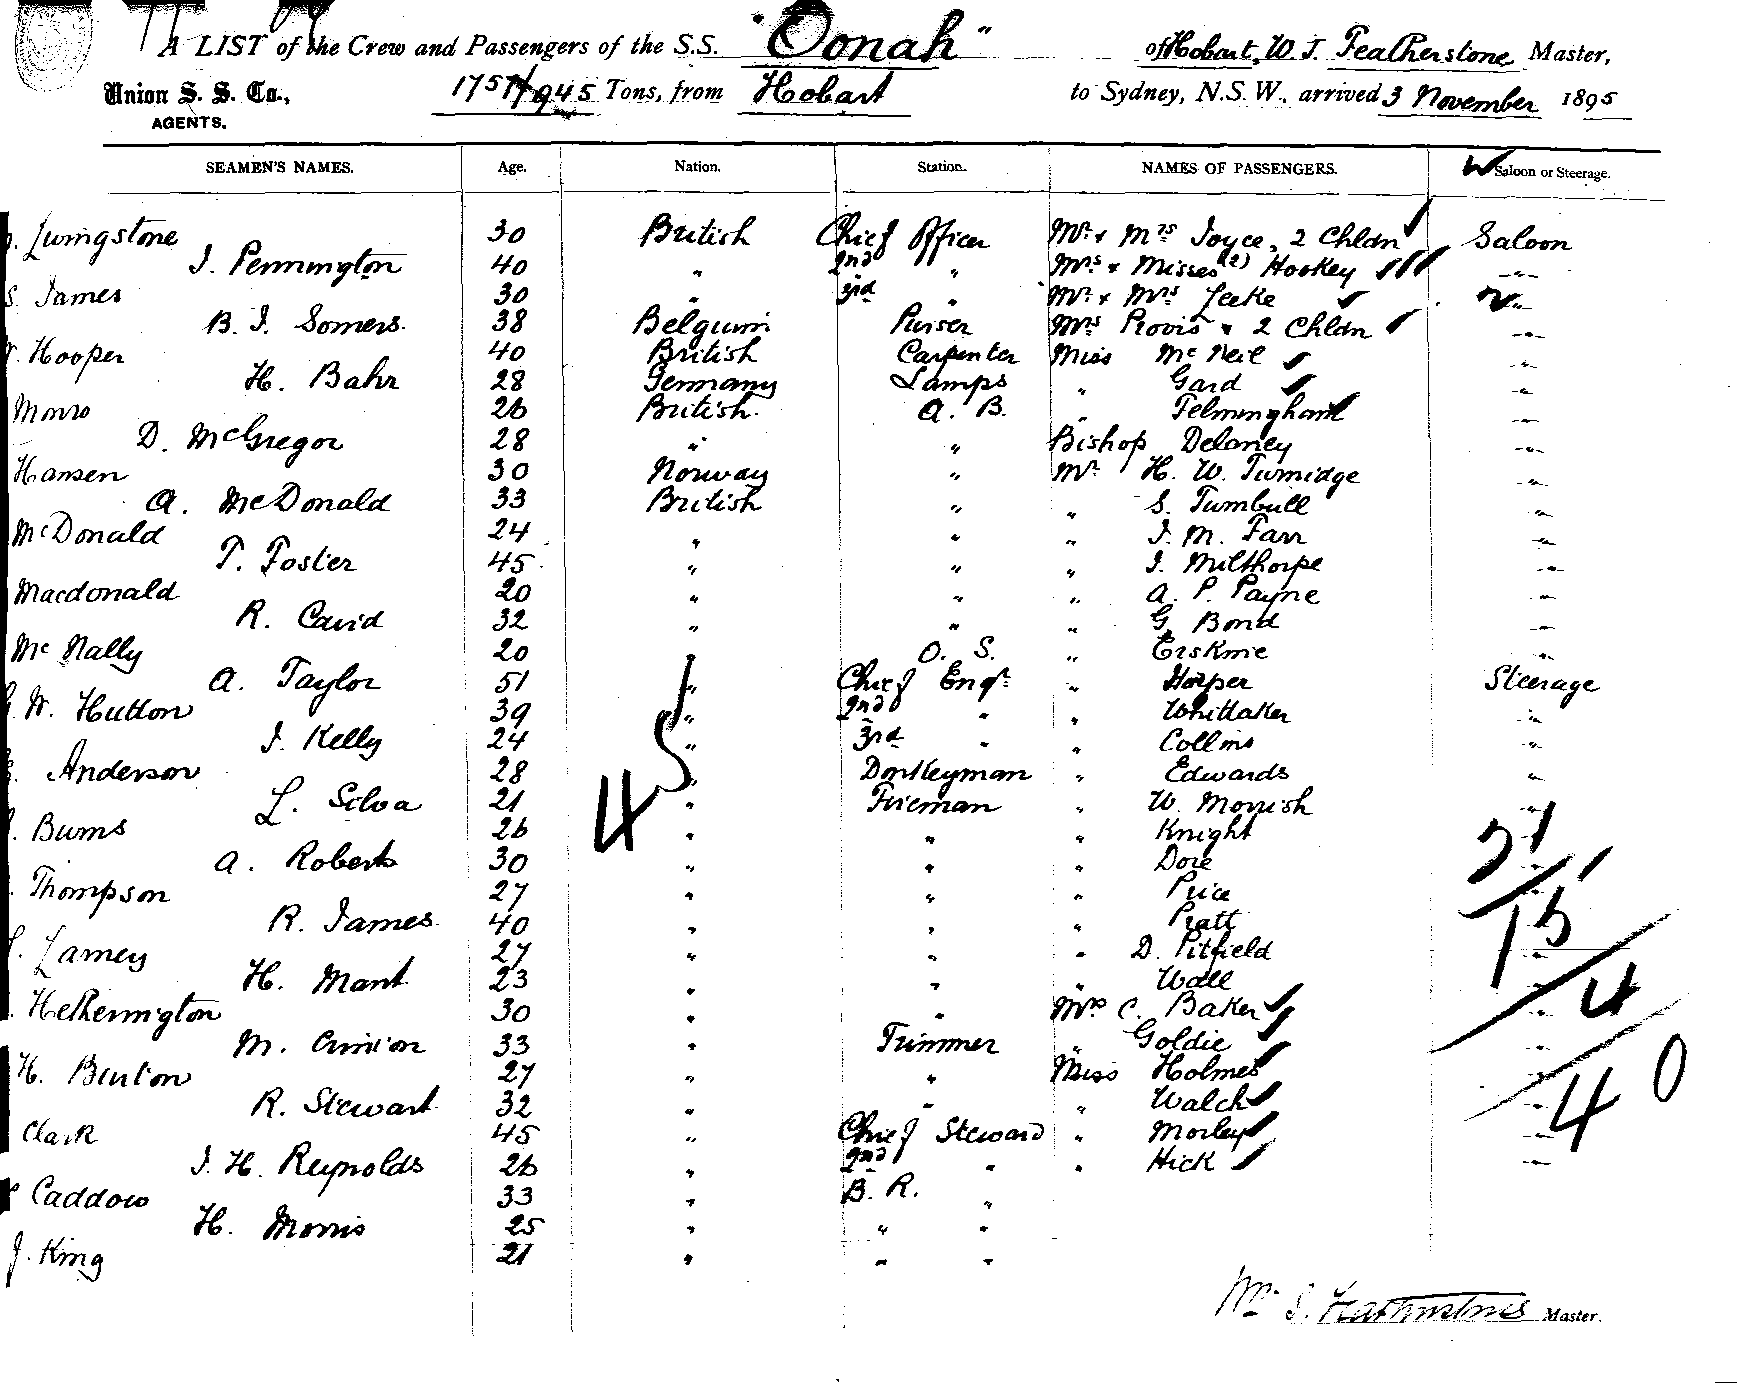 A LIST of the Crew and Passengers of the S.S. "Oonah" of Hobart, W. J. Featherstone Master,
Union S. S. Co., 1757/945 Tons, from Hobart to Sydney, N.S.W., arrived 3 November 1895
AGENTS.
SEAMEN'S NAMES. Age. Nation. Station. NAMES OF PASSENGERS. Saloon or Steerage.
Livingstone 30 British Chief Officer Mr & Mrs Joyce, 2 Chldn Saloon
J. Pennington 40 " 2nd " Mrs & Misses (2) Hookey "
S. James 30 " 3rd " Mr & Mrs Leeke "
B. J. Somers 38 Belgium Purser Mrs Provis & 2 Chldn "
Hooper 40 British Carpenter Miss McNeil "
H. Bahr 28 Germany Lamps " Gard "
Monro 26 British A. B. " Felmingham "
D. McGregor 28 " " Bishop Delaney "
Hansen 30 Norway " Mr H. W. Turnidge "
A. McDonald 33 British " " S. Turnbull "
McDonald 24 " " " J. M. Farr "
T. Foster 45 " " " J. Milthorpe "
Macdonald 20 " " " A. P. Payne "
R. Cavid 32 " " " G. Bond "
McNally 20 " O. S. " Erskine "
A. Taylor 51 " Chief Engr " Harper Steerage
W. Hutton 39 " 2nd " " Whittaker "
J. Kelly 24 " 3rd " " Collins "
Anderson 28 " Donkeyman " Edwards "
L. Silva 21 " Fireman " W. Morrish "
Burns 26 " " " Knight "
A. Roberts 30 " " " Dore "
Thompson 27 " " " Price "
R. James 40 " " " Pratt "
Lamey 27 " " " D. Pitfield "
H. Mant 23 " " " Wall "
Hetherington 30 " " Mrs C. Baker "
M. 33 " Trimmer " Goldie "
H. Burton 27 " " Miss Holmes "
R. Stewart 32 " " " Walch "
Clark 45 " Chief Steward " Morley "
J. H. Reynolds 26 " 2nd " " Hick "
Caddow 33 " B. R. "
H. Morris 25 " " "
J. King 21 " " "
45
21
15
4
40
Wm J. Featherstone Master.